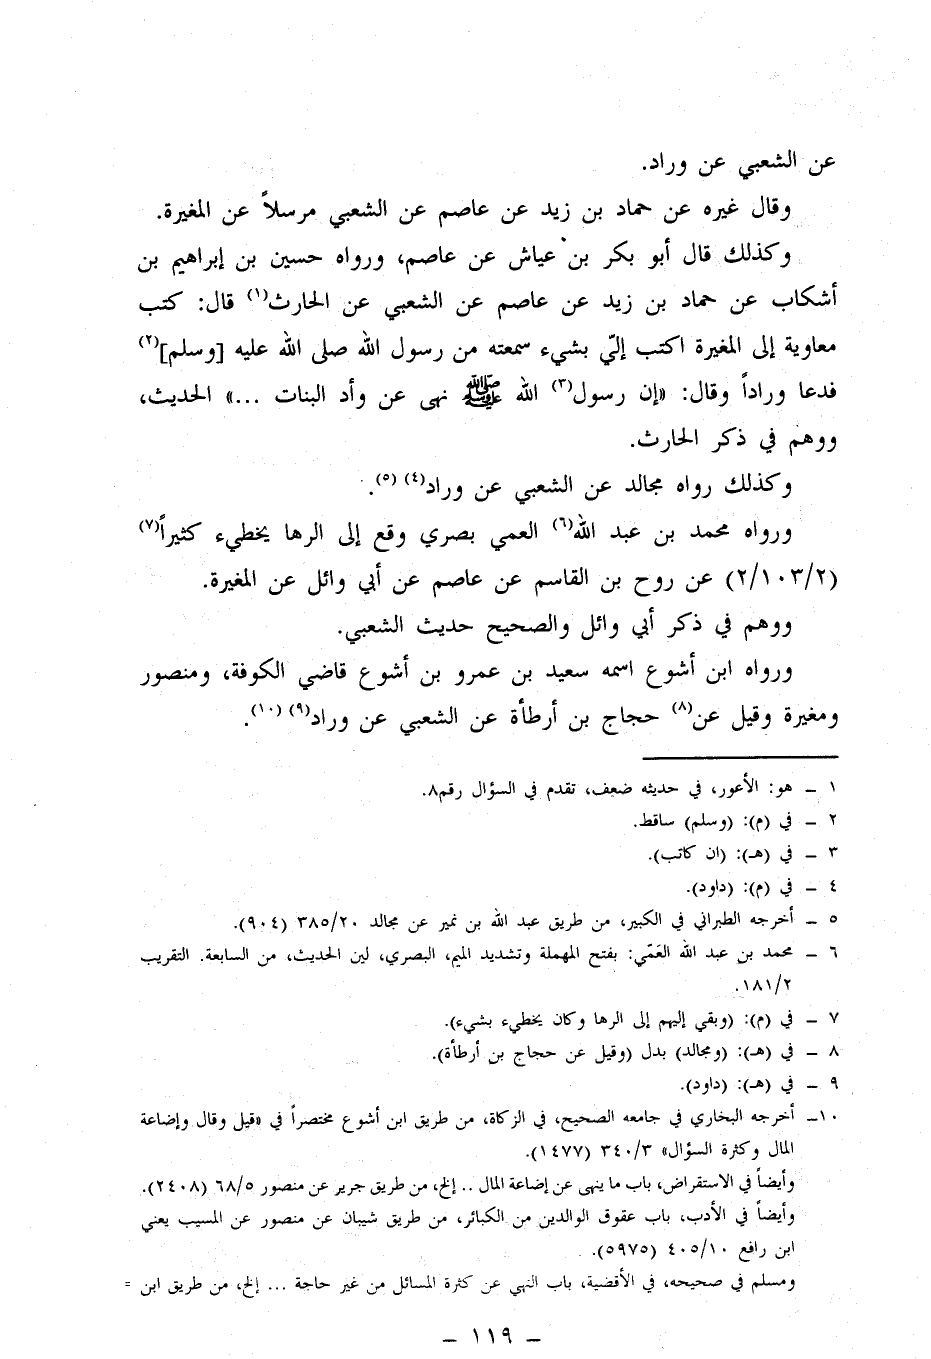 عن الشعبي عن وراد.
وقال غيره عن حماد بن زيد عن عاصم عن الشعبي مرسلاً عن المغيرة.
وكذلك قال أبو بكر بن عياش عن عاصم، ورواه حسين بن إبراهيم بن
أشكاب عن حماد بن زيد عن عاصم عن الشعبي عن الحارث(١) قال: كتب
معاوية إلى المغيرة اكتب إليّ بشيء سمعته من رسول الله صلى الله عليه [وسلم](٢)
فدعا وراداً وقال: «إن رسول(٣) الله ﷺ نهى عن وأد البنات ...» الحديث،
ووهم في ذكر الحارث.
وكذلك رواه مجالد عن الشعبي عن وراد(٤) (٥).
ورواه محمد بن عبد الله(٦) العمي بصري وقع إلى الرها يخطيء كثيراً(٧)
(٢/١٠٣/٢) عن روح بن القاسم عن عاصم عن أبي وائل عن المغيرة.
ووهم في ذكر أبي وائل والصحيح حديث الشعبي.
ورواه ابن أشوع اسمه سعيد بن عمرو بن أشوع قاضي الكوفة، ومنصور
ومغيرة وقيل عن(٨) حجاج بن أرطأة عن الشعبي عن وراد(٩) (١٠).
١ ـ هو: الأعور، في حديثه ضعف، تقدم في السؤال رقم٨.
٢ ـ في (م): (وسلم) ساقط.
٣ ـ في (هـ): (ان كاتب).
٤ ـ في (م): (داود).
٥ ـ أخرجه الطبراني في الكبير، من طريق عبد الله بن نمير عن مجالد ٣٨٥/٢٠ (٩٠٤).
٦ ـ محمد بن عبد الله العَمّي: بفتح المهملة وتشديد الميم، البصري، لين الحديث، من السابعة. التقريب
١٨١/٢.
٧ ـ في (م): (وبقي إليهم إلى الرها وكان يخطيء بشيء).
٨ ـ في (هـ): (ومجالد) بدل (وقيل عن حجاج بن أرطأة).
٩ ـ في (هـ): (داود).
١٠ـ أخرجه البخاري في جامعه الصحيح، في الزكاة، من طريق ابن أشوع مختصراً في «قيل وقال وإضاعة
المال وكثرة السؤال» ٣٤٠/٣ (١٤٧٧).
وأيضاً في الاستقراض، باب ما ينهى عن إضاعة المال .. إلخ، من طريق جرير عن منصور ٦٨/٥ (٢٤٠٨).
وأيضاً في الأدب، باب عقوق الوالدين من الكبائر، من طريق شيبان عن منصور عن المسيب يعني
ابن رافع ٤٠٥/١٠ (٥٩٧٥).
ومسلم في صحيحه، في الأقضية، باب النهي عن كثرة المسائل من غير حاجة ... إلخ، من طريق ابن =
ـ ١١٩ ـ